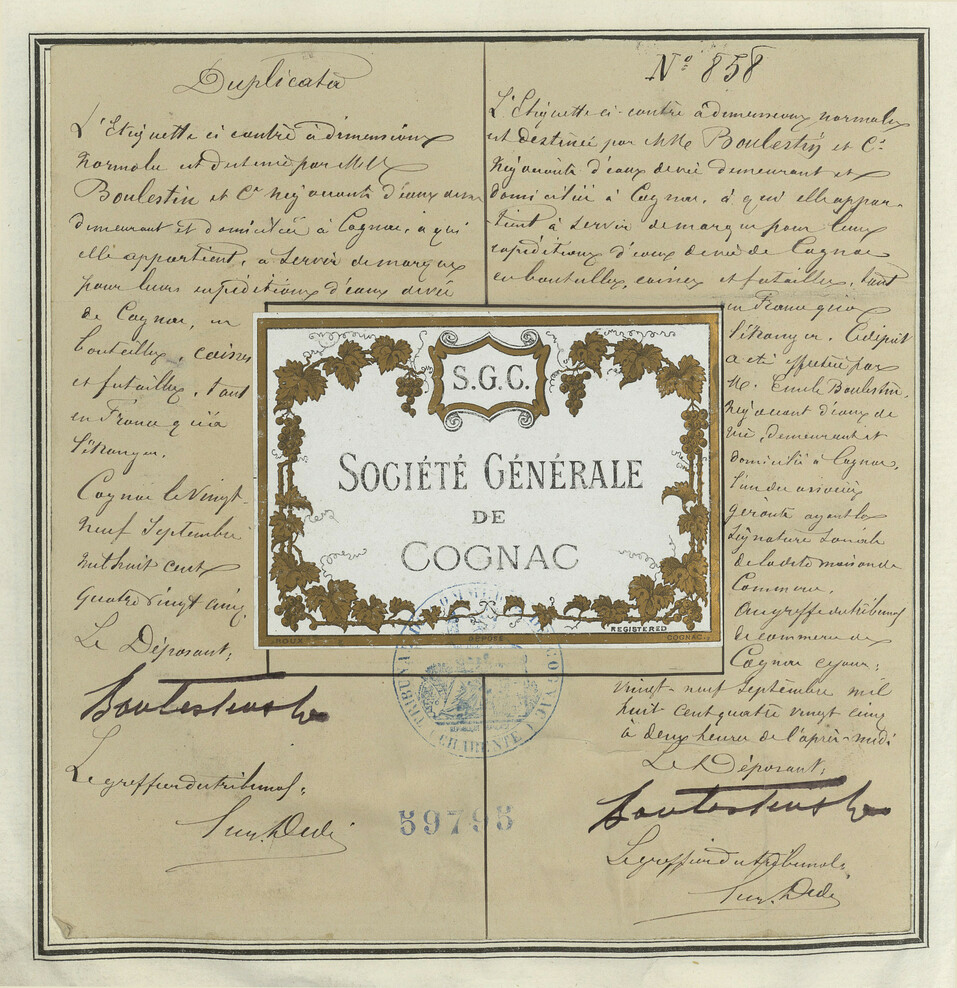 Duplicata
L'Etiquette ci contre à dimensions
normales est destinée par MM
Boulestin et Cie Négociants d'eaux de vie
demeurant et domiciliés à Cognac, à qui
elle appartient, à servir de marque
pour leurs expéditions d'eaux de vie
de Cognac, en
bouteilles, caisses
et futailles, tant
en France qu'à
l'étranger.
Cognac le vingt-
neuf Septembre
mil huit cent
quatre vingt cinq
Le Déposant;
Boulestin & Co
Le greffier du tribunal;
N° 858
L'Etiquette ci-contre à dimensions normales
est destinée par MM Boulestin et Cie
Négociants d'eaux de vie demeurant et
domiciliés à Cognac, à qui elle appar-
-tient à servir de marque pour leurs
expéditions d'eaux de vie de Cognac
en bouteilles, caisses et futailles, tant
en France qu'à
l'étranger. Le dépôt
a été effectué par
M. Emile Boulestin,
Négociant d'eaux de
vie, demeurant et
domicilié à Cognac,
l'un des associés
gérants ayant la
signature sociale
de la dite maison de
Commerce.
Au greffe du tribunal
de commerce de
Cognac ce jour;
vingt-neuf Septembre mil
huit cent quatre vingt cinq
à deux heures de l'après-midi
Le Déposant;
Boulestin & Co
Le greffier du tribunal;
S.G.C.
SOCIÉTÉ GÉNÉRALE
DE
COGNAC
REGISTERED
ROUX DÉPOSÉ COGNAC.
TRIBUNAL DE COMMERCE DE COGNAC
CHARENTE
59795